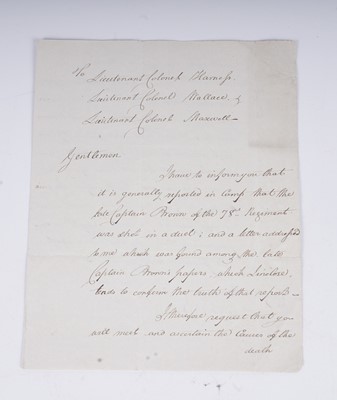 To
Lieutenant Colonel Harness
Lieutenant Colonel Wallace, &
Lieutenant Colonel Maxwell—
Gentlemen
I have to inform you that
it is generally reported in Camp that the
late Captain Brown of the 78th Regiment
was shot in a duel; and a letter addressed
to me which was found among the late
Captain Brown's papers, which I inclose,
tends to confirm the truth of that report—
I therefore request that you
will meet and ascertain the Causes of the
death